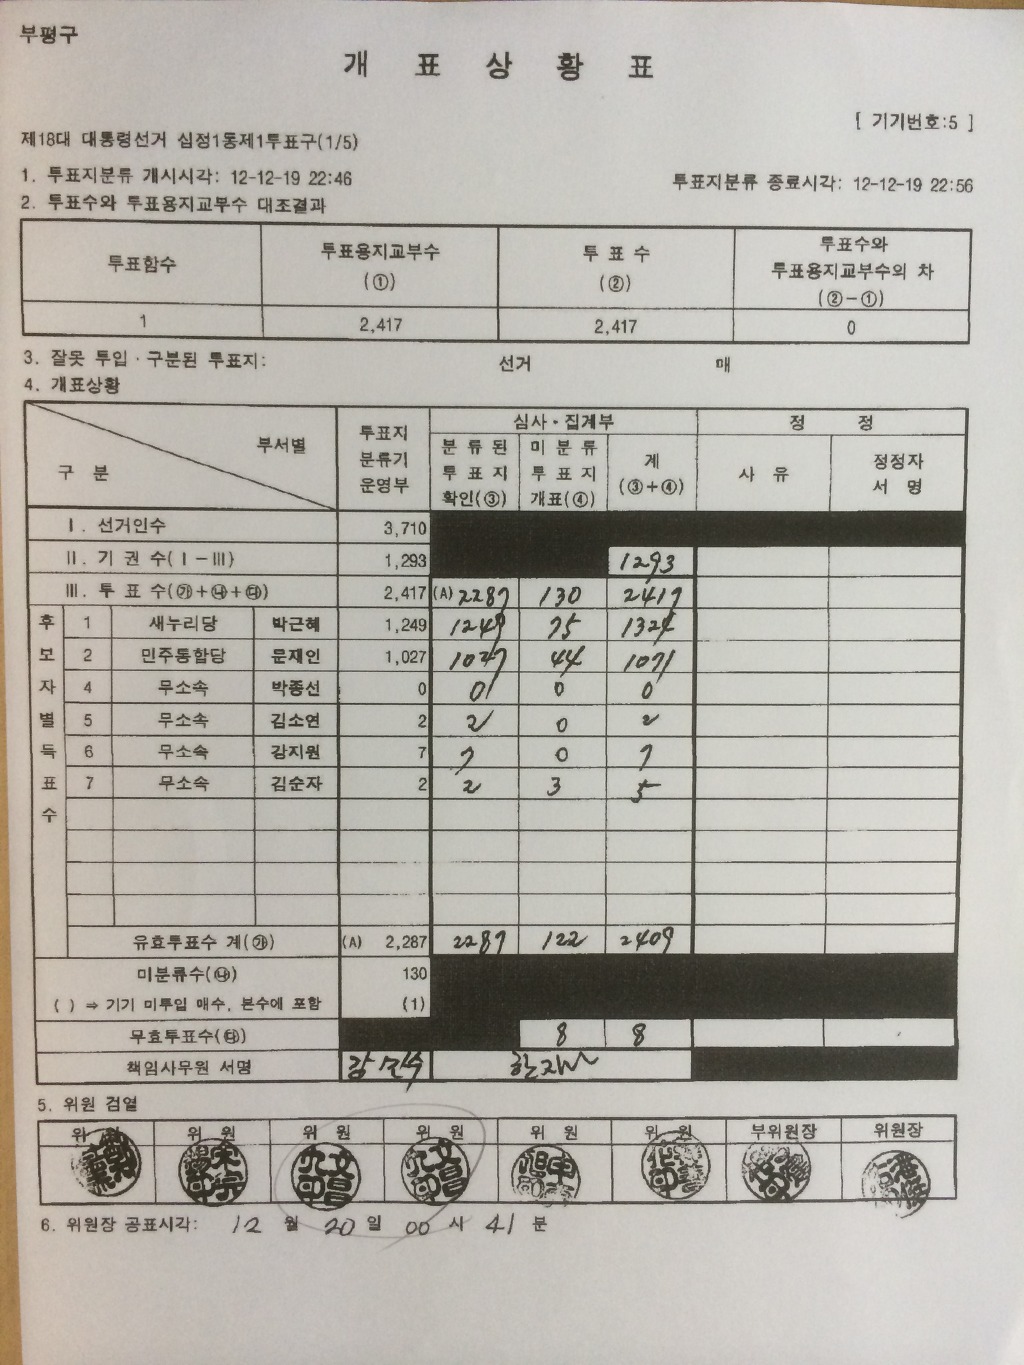 부평구
개 표 상 황 표
[ 기기번호:5 ]
제18대 대통령선거 십정1동제1투표구(1/5)
1. 투표지분류 개시시각: 12-12-19 22:46 투표지분류 종료시각: 12-12-19 22:56
2. 투표수와 투표용지교부수 대조결과
투표함수 투표용지교부수 (①) 투 표 수 (②) 투표수와 투표용지교부수의 차 (②-①)
1 2,417 2,417 0
3. 잘못 투입·구분된 투표지: 선거 매
4. 개표상황
구 분 부서별 투표지 분류기 운영부 심사·집계부 정 정
분 류 된 투 표 지 확인(③) 미 분 류 투 표 지 개표(④) 계 (③+④) 사 유 정정자 서 명
Ⅰ. 선거인수 3,710
Ⅱ. 기 권 수(Ⅰ-Ⅲ) 1,293 1293
Ⅲ. 투 표 수(㉮+㉯+㉰) 2,417 (A) 2287 130 2417
후보자별득표수
1 새누리당 박근혜 1,249 1249 75 1324
2 민주통합당 문재인 1,027 1027 44 1071
4 무소속 박종선 0 0 0 0
5 무소속 김소연 2 2 0 2
6 무소속 강지원 7 7 0 7
7 무소속 김순자 2 2 3 5
유효투표수 계(㉮) (A) 2,287 2287 122 2409
미분류수(㉯) 130
( ) ⇒ 기기 미투입 매수, 본수에 포함 (1)
무효투표수(㉰) 8 8
책임사무원 서명
5. 위원 검열
위 원 위 원 위 원 위 원 위 원 위 원 부위원장 위원장
6. 위원장 공표시각: 12 월 20 일 00 시 41 분